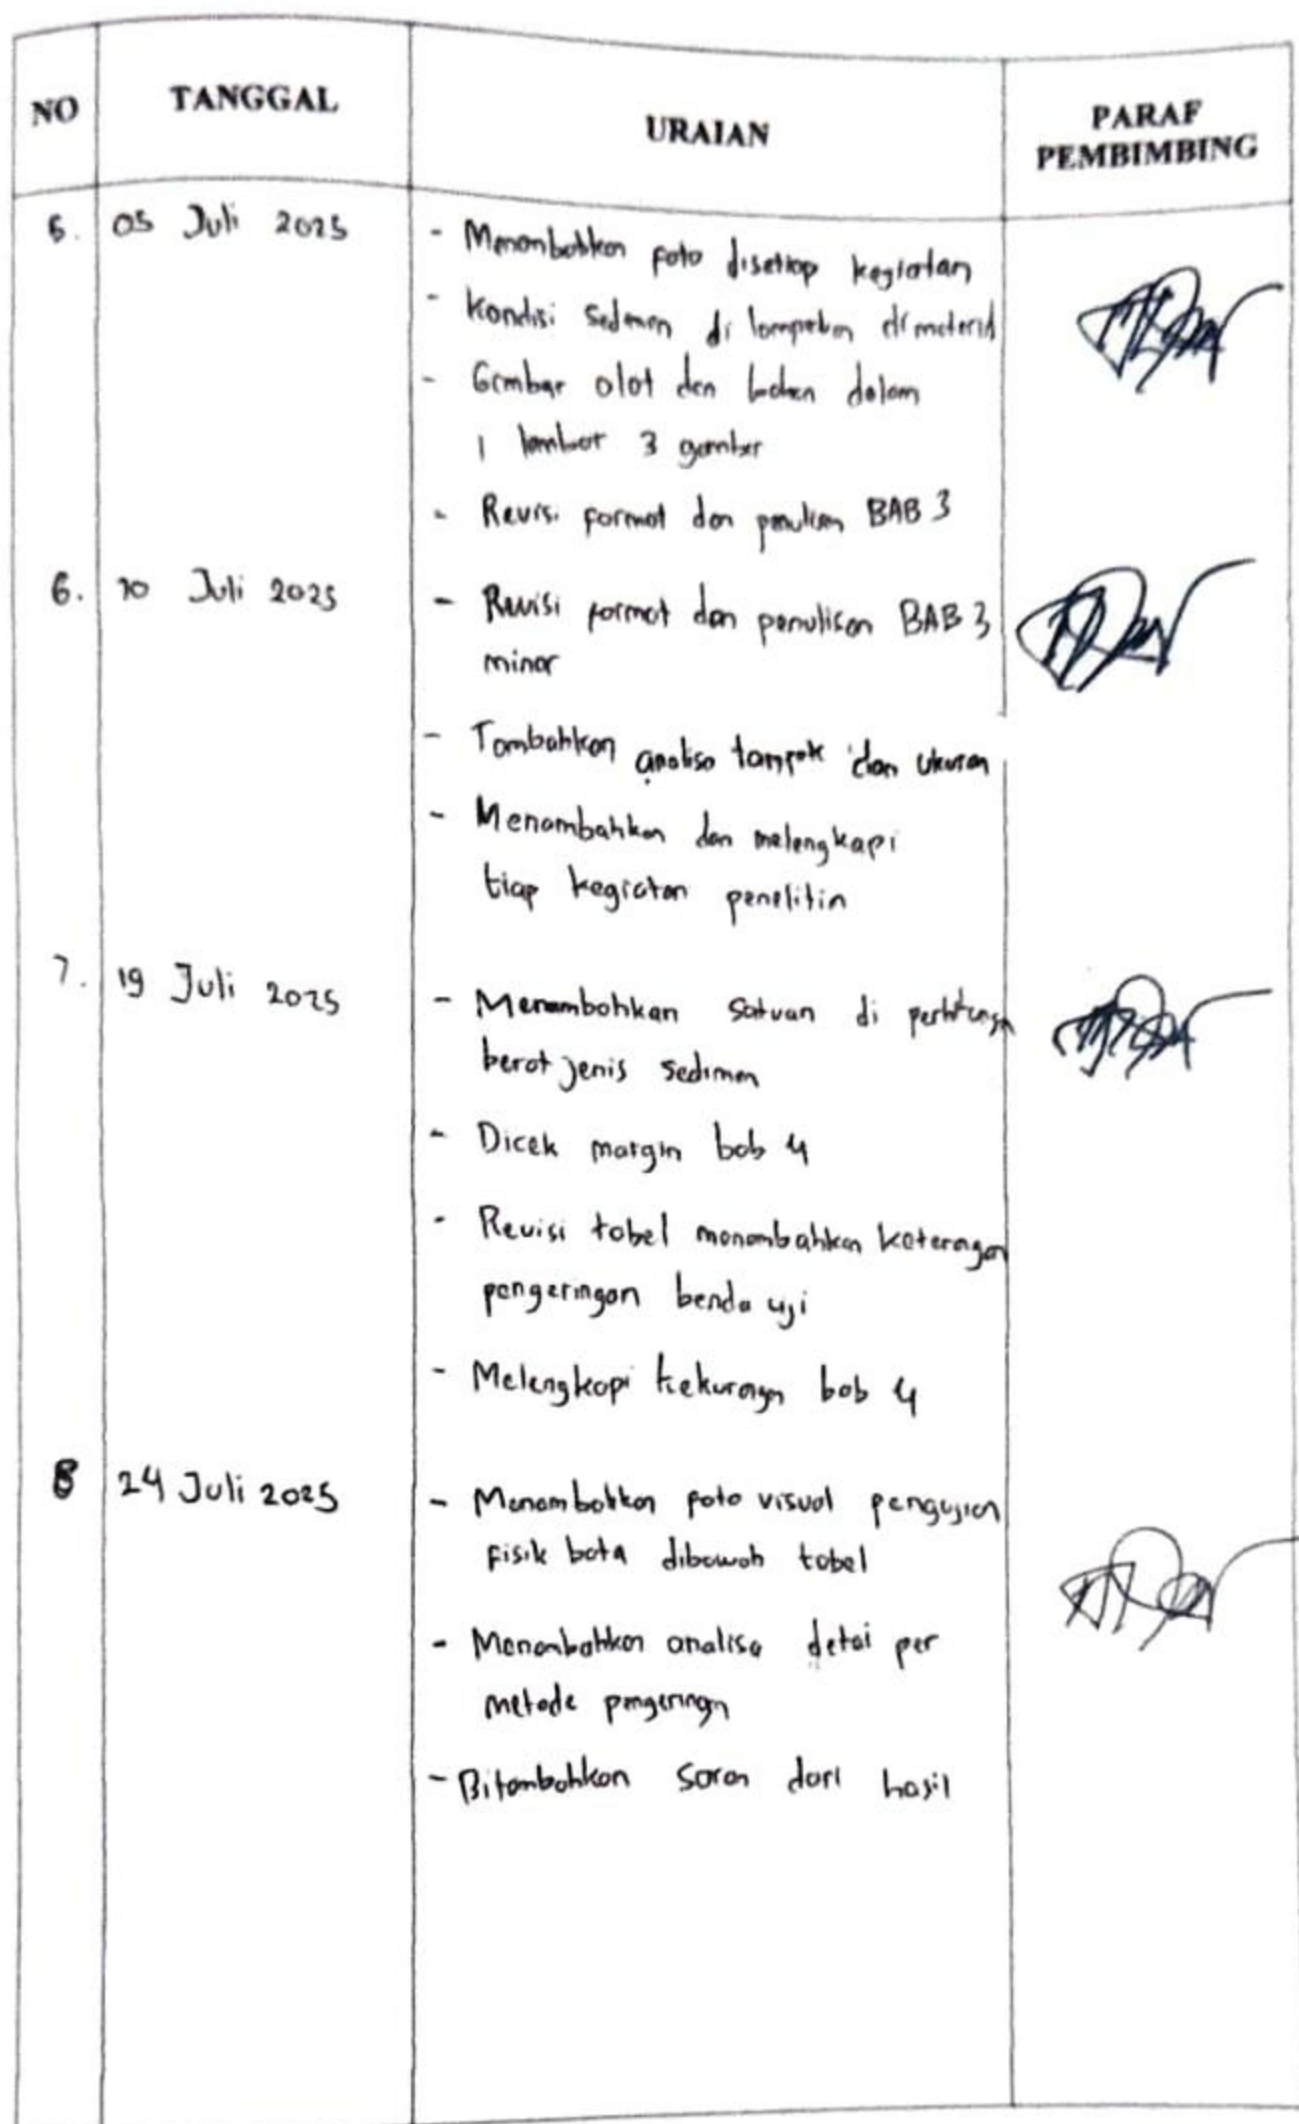 NO TANGGAL URAIAN PARAF PEMBIMBING
5. 05 Juli 2025 - Menambahkan foto disetiap kegiatan
- Kondisi sedimen di lampirkan di material
- Gambar alat dan bahan dalam
1 lembar 3 gambar
- Revisi format dan penulisan BAB 3
6. 10 Juli 2025 - Revisi format dan penulisan BAB 3
minor
- Tambahkan analisa tampak dan ukuran
- Menambahkan dan melengkapi
tiap kegiatan penelitin
7. 19 Juli 2025 - Menambahkan satuan di perhitungn
berat jenis sedimen
- Dicek margin bab 4
- Revisi tabel menambahkan keterangan
pengeringan benda uji
- Melengkapi kekurangn bab 4
8 24 Juli 2025 - Menambahkan foto visual pengujian
fisik bata dibawah tabel
- Menambahkan analisa detai per
metode pengeringn
- Ditambahkan saran dari hasil